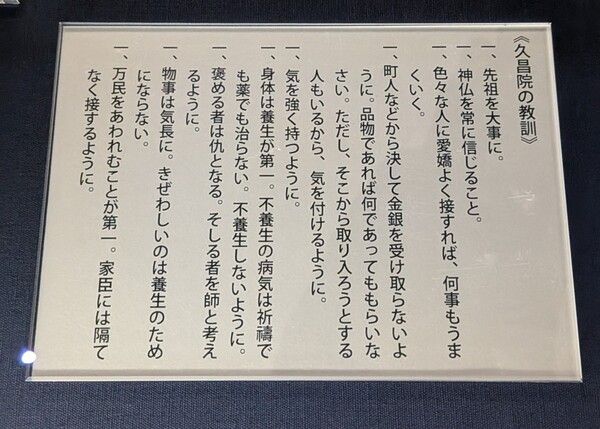 《久昌院の教訓》
一、先祖を大事に。
一、神仏を常に信じること。
一、色々な人に愛嬌よく接すれば、何事もうま
くいく。
一、町人などから決して金銀を受け取らないよ
うに。品物であれば何であってももらいな
さい。ただし、そこから取り入ろうとする
人もいるから、気を付けるように。
一、気を強く持つように。
一、身体は養生が第一。不養生の病気は祈禱で
も薬でも治らない。不養生しないように。
一、褒める者は仇となる。そしる者を師と考え
るように。
一、物事は気長に。きぜわしいのは養生のため
にならない。
一、万民をあわれむことが第一。家臣には隔て
なく接するように。